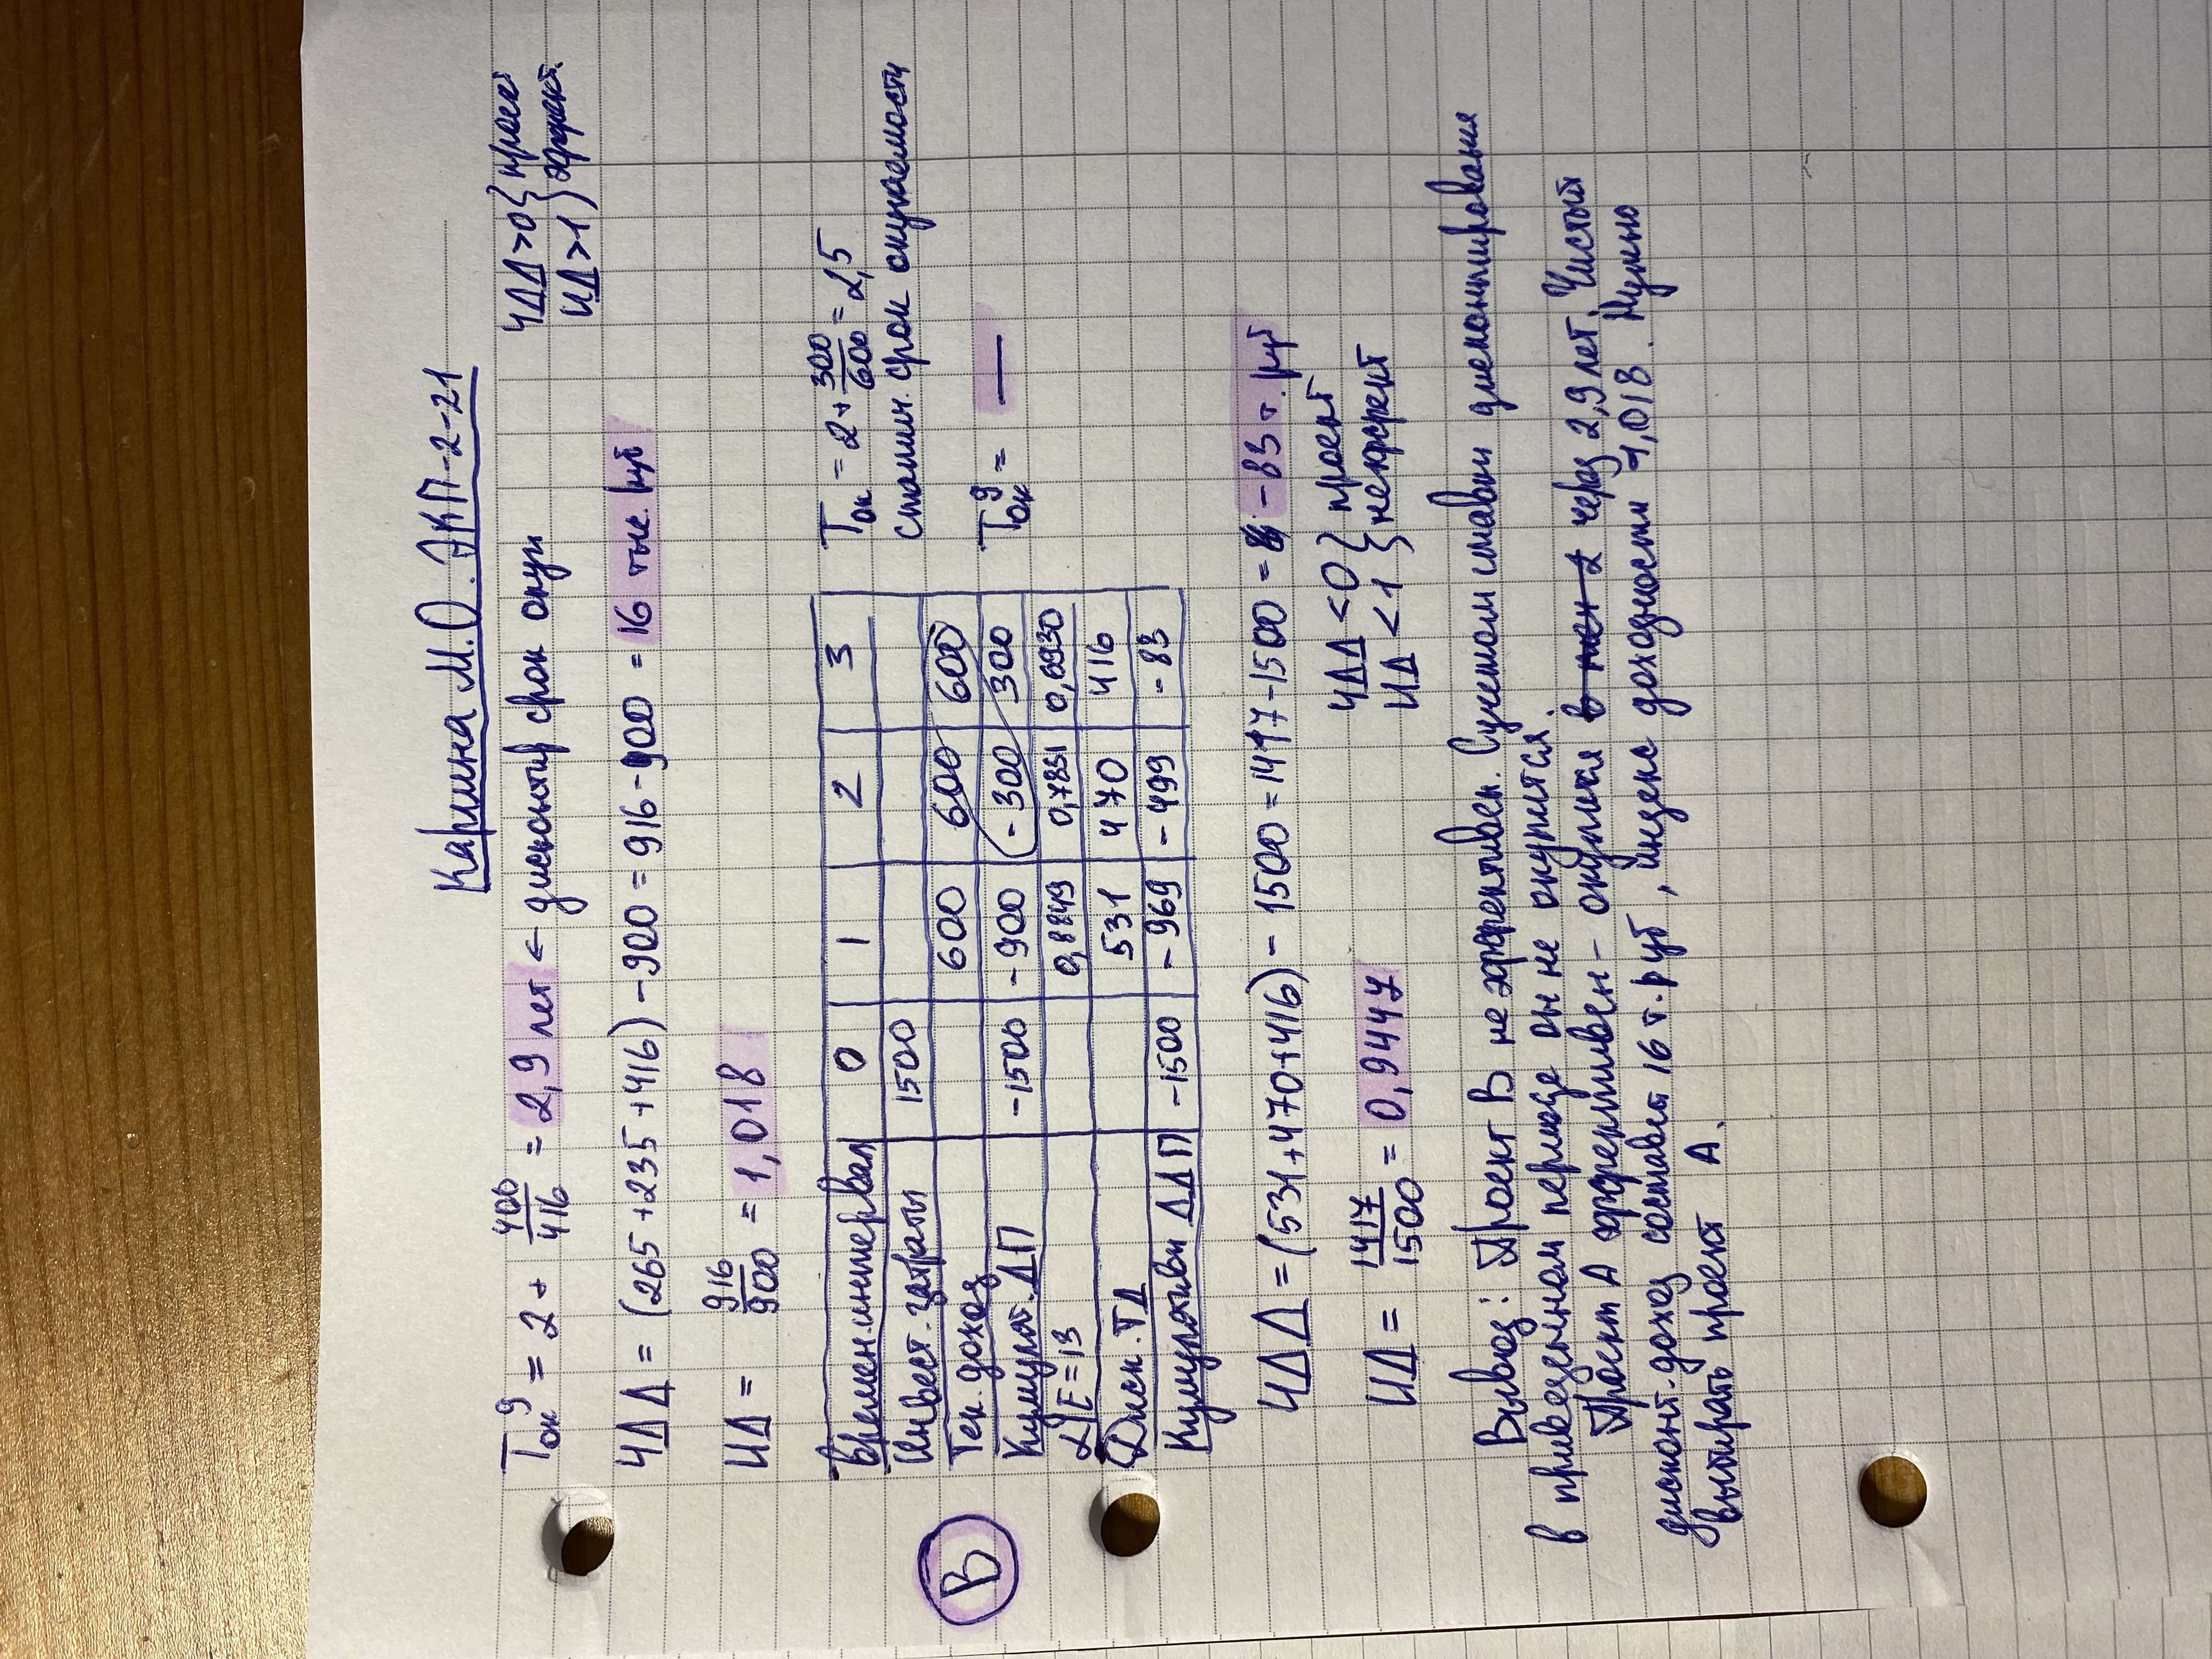 Каршина М.О. ЭКП-2-21
Tок^д = 2 + 400/416 = 2,9 лет ← дисконтир срок окуп
ЧДД>0 } проект
ИД>1 } эффект.
ЧДД = (265+235+416) - 900 = 916 - 900 = 16 тыс. руб
ИД = 916/900 = 1,018
времен.интервал 0 1 2 3
Инвест. затраты 1500
Тек. доход 600 600 600
Кумулят. ДП -1500 -900 -300 300
α E=13 0,8849 0,7831 0,6930
Диск. ТД 531 470 416
Кумулятивн ДДП -1500 -969 -499 -83
В
Tок = 2+ 300/600 = 2,5
статич. срок окупаемости
Tок^д = —
ЧДД = (531+470+416) - 1500 = 1417-1500 = -83 т. руб
ИД = 1417/1500 = 0,9447
ЧДД <0 } проект
ИД <1 } неэффект
Вывод: Проект В не эффективен. С учетом ставки дисконтирования
в приведенном периоде он не окупится.
Проект А эффективен - окупится через 2,9 лет. Чистый
дисконт. доход составит 16 т. руб, индекс доходности 1,018. Нужно
выбирать проект А.